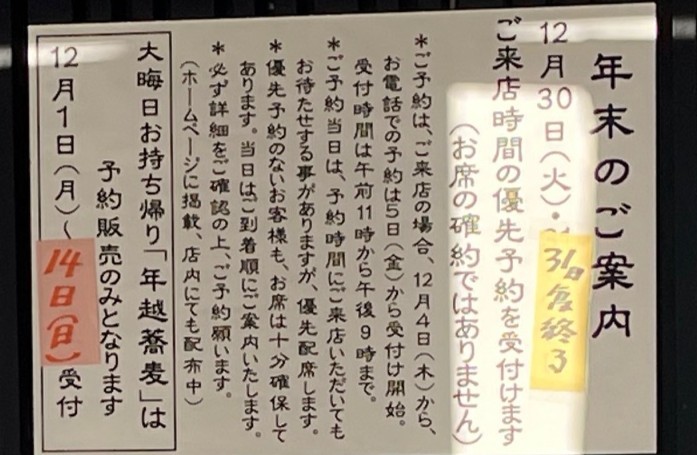 年末のご案内
12月30日(火)・
31日 終了
ご来店時間の優先予約を受付けます
(お席の確約ではありません)
*ご予約は、ご来店の場合、12月4日(木)から、
お電話での予約は5日(金)から受付け開始。
受付時間は午前11時から午後9時まで。
*ご予約当日は、予約時間にご来店いただいても
お待たせする事がありますが、優先配席します。
*優先予約のないお客様も、お席は十分確保して
あります。当日はご到着順にご案内いたします。
*必ず詳細をご確認の上、ご予約願います。
(ホームページに掲載、店内にても配布中)
大晦日お持ち帰り「年越蕎麦」は
予約販売のみとなります
12月1日(月)~14日(日)受付